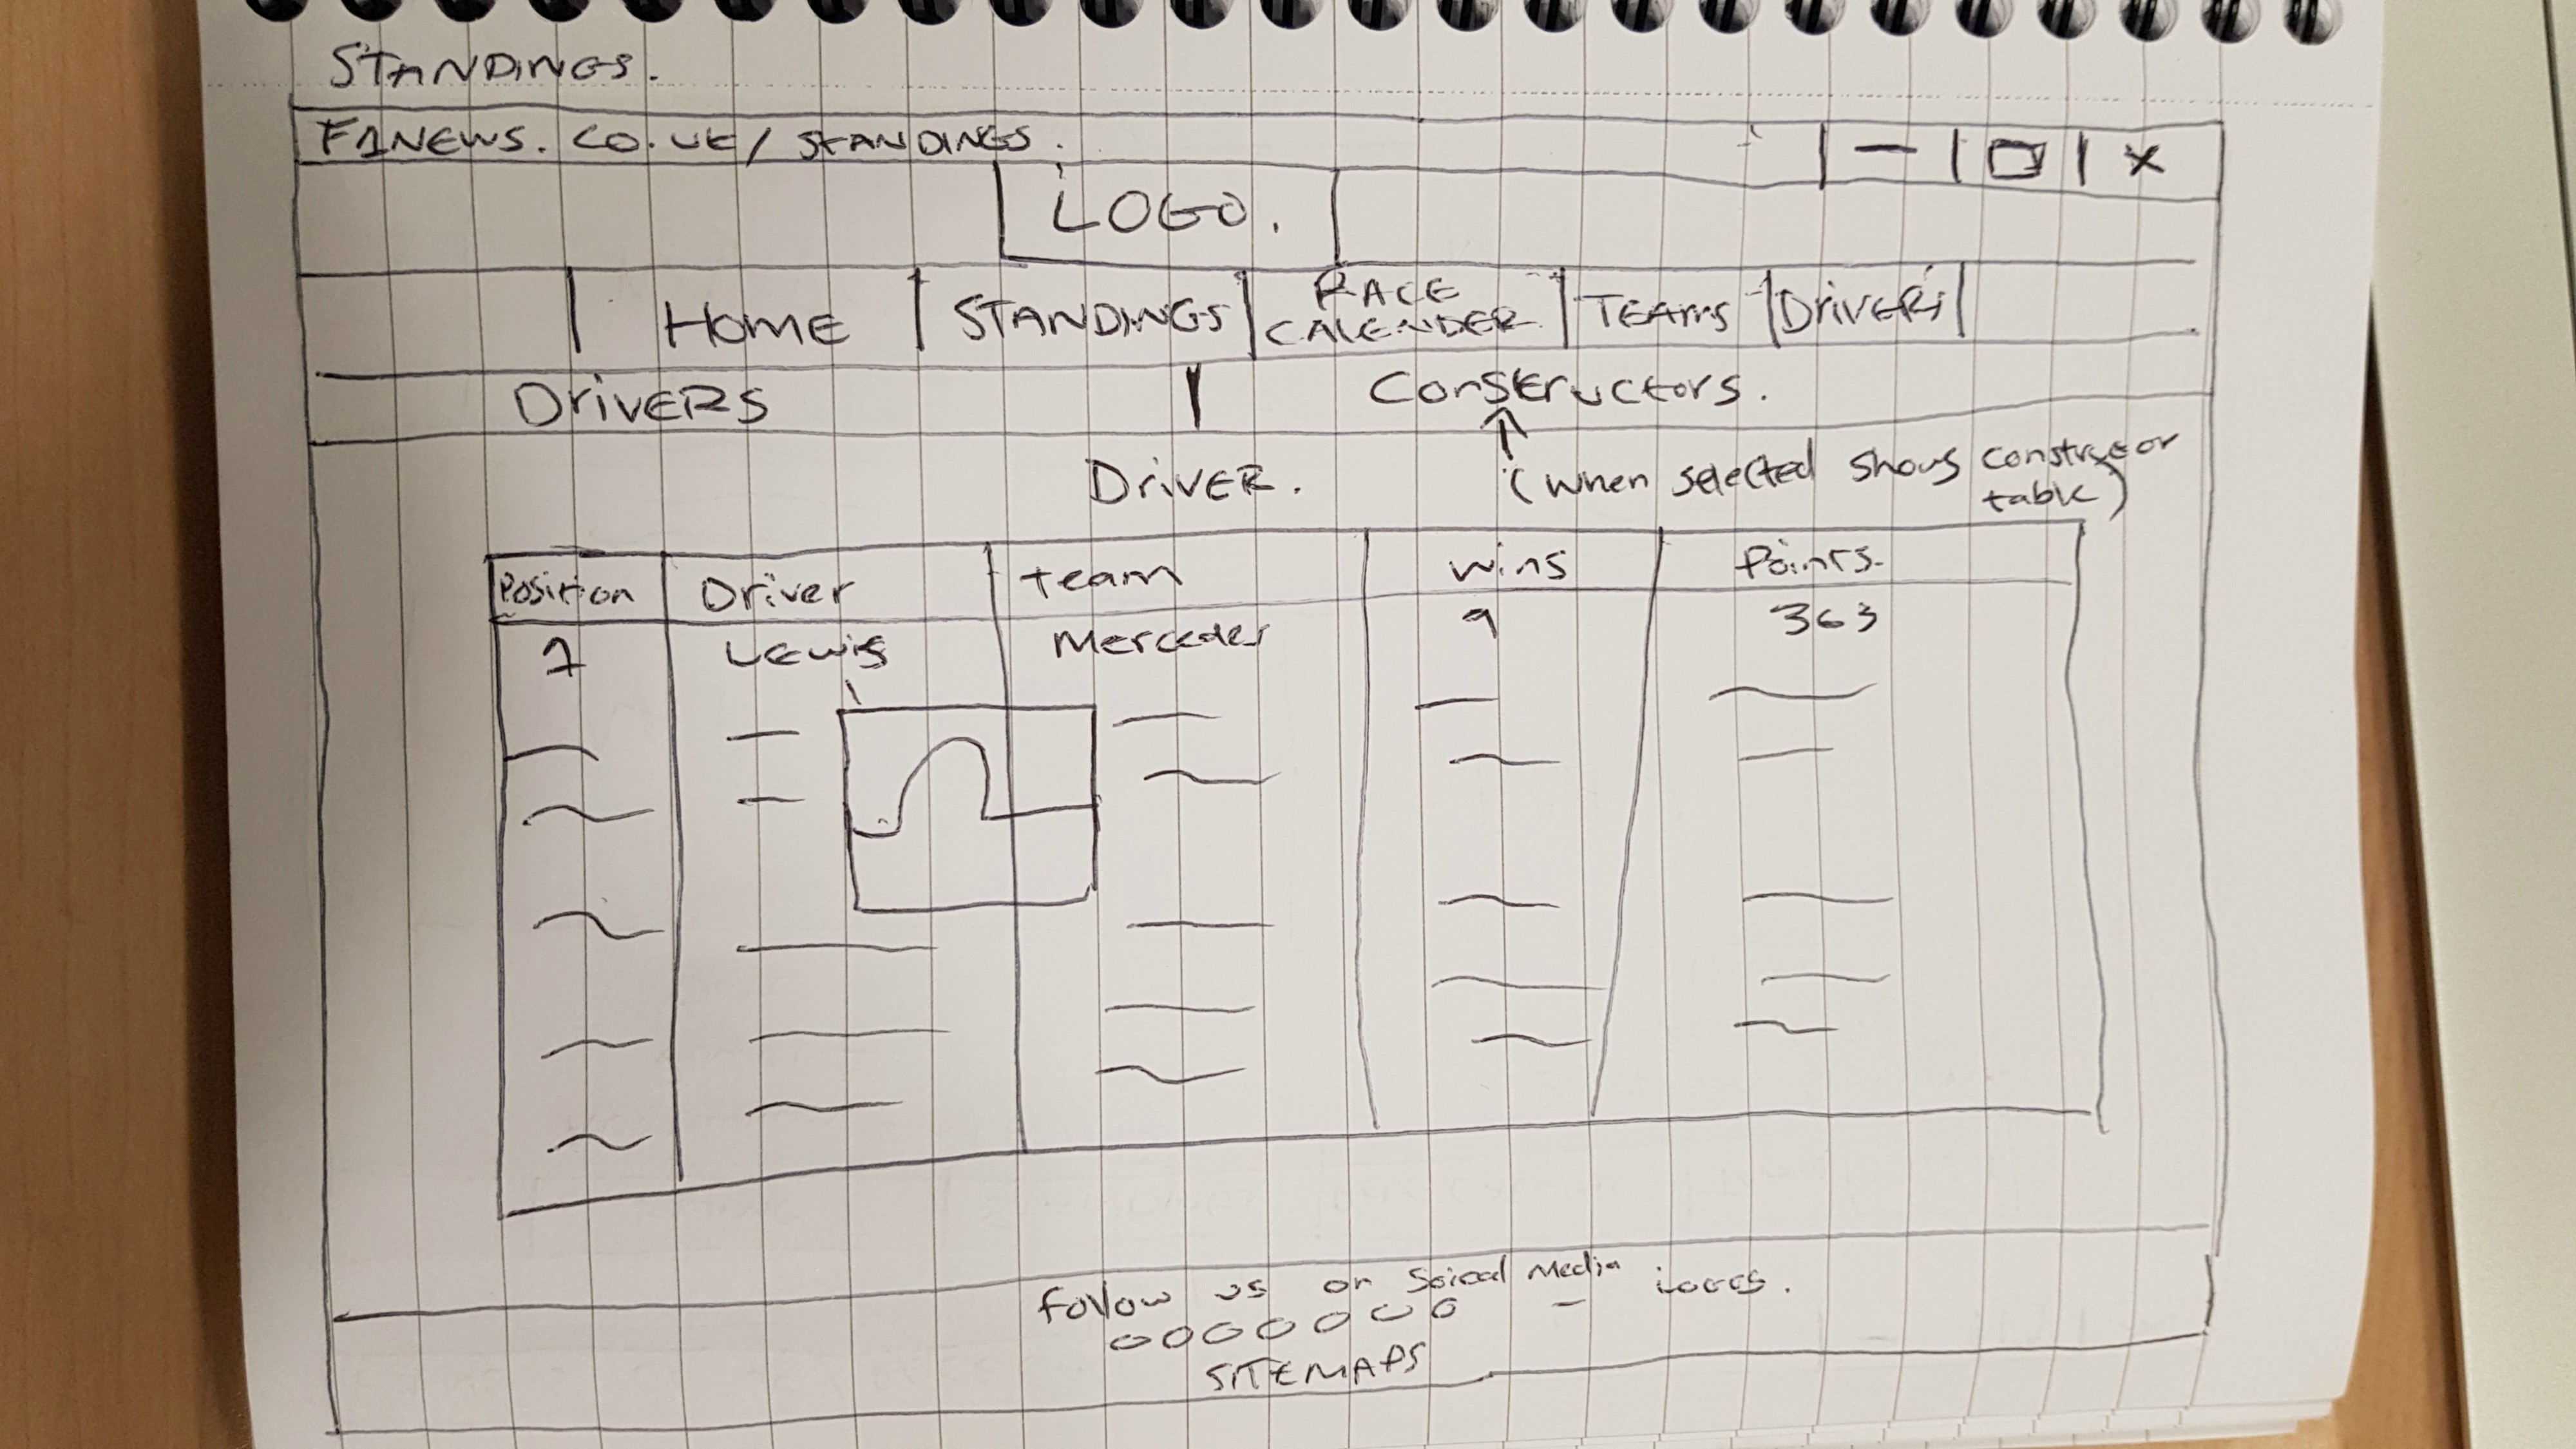 STANDINGS.
F1NEWS.CO.UK/STANDINGS.
X
LOGO.
HOME
STANDINGS
RACE
CALENDER
TEAMS
DRIVERS
DRIVERS
Constructors.
DRIVER.
(when selected shows constructor
table)
Position Driver team wins Points.
1 Lewis Mercedes 9 363
follow us on Soical Media
SITEMAPS